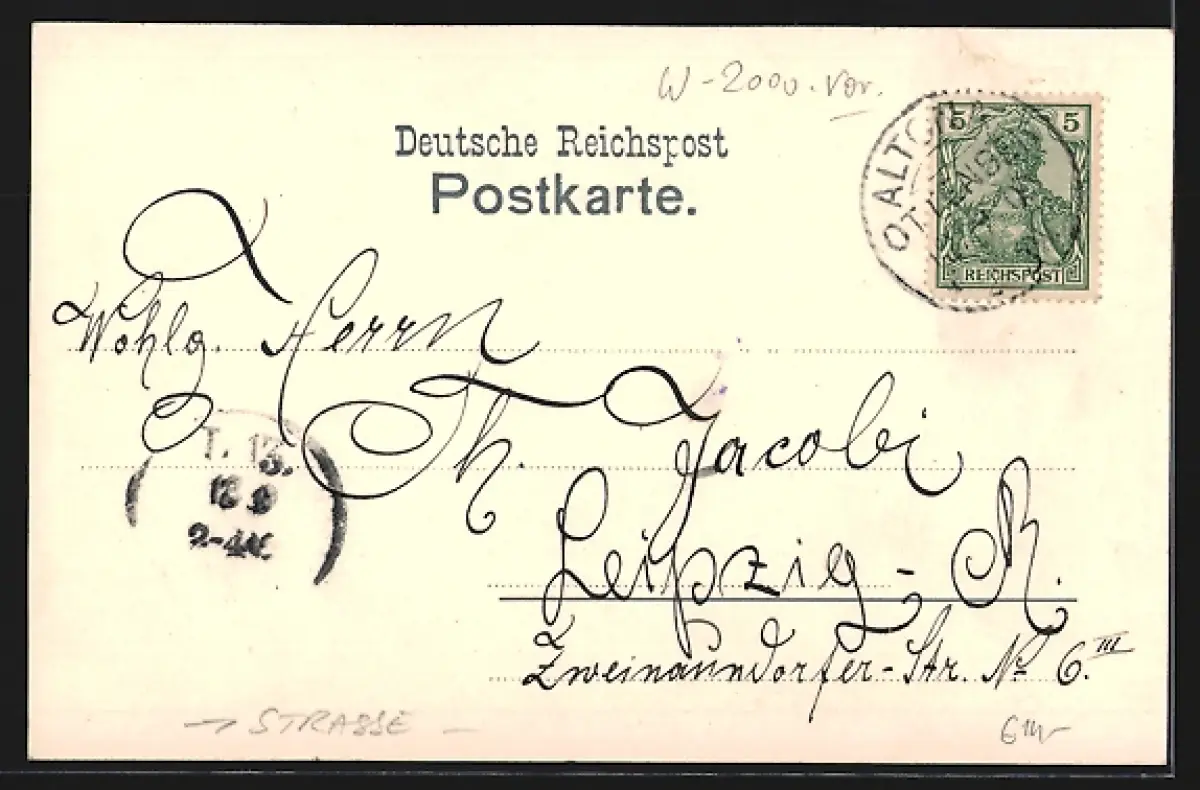 W-2000. Vor.
Deutsche Reichspost
Postkarte.
5 5
REICHSPOST
Wohlg. Herrn
Th. Jacobi
Leipzig-R.
Zweinaundorfer-Str. No 6.III
T. 13.
2-4N
STRASSE